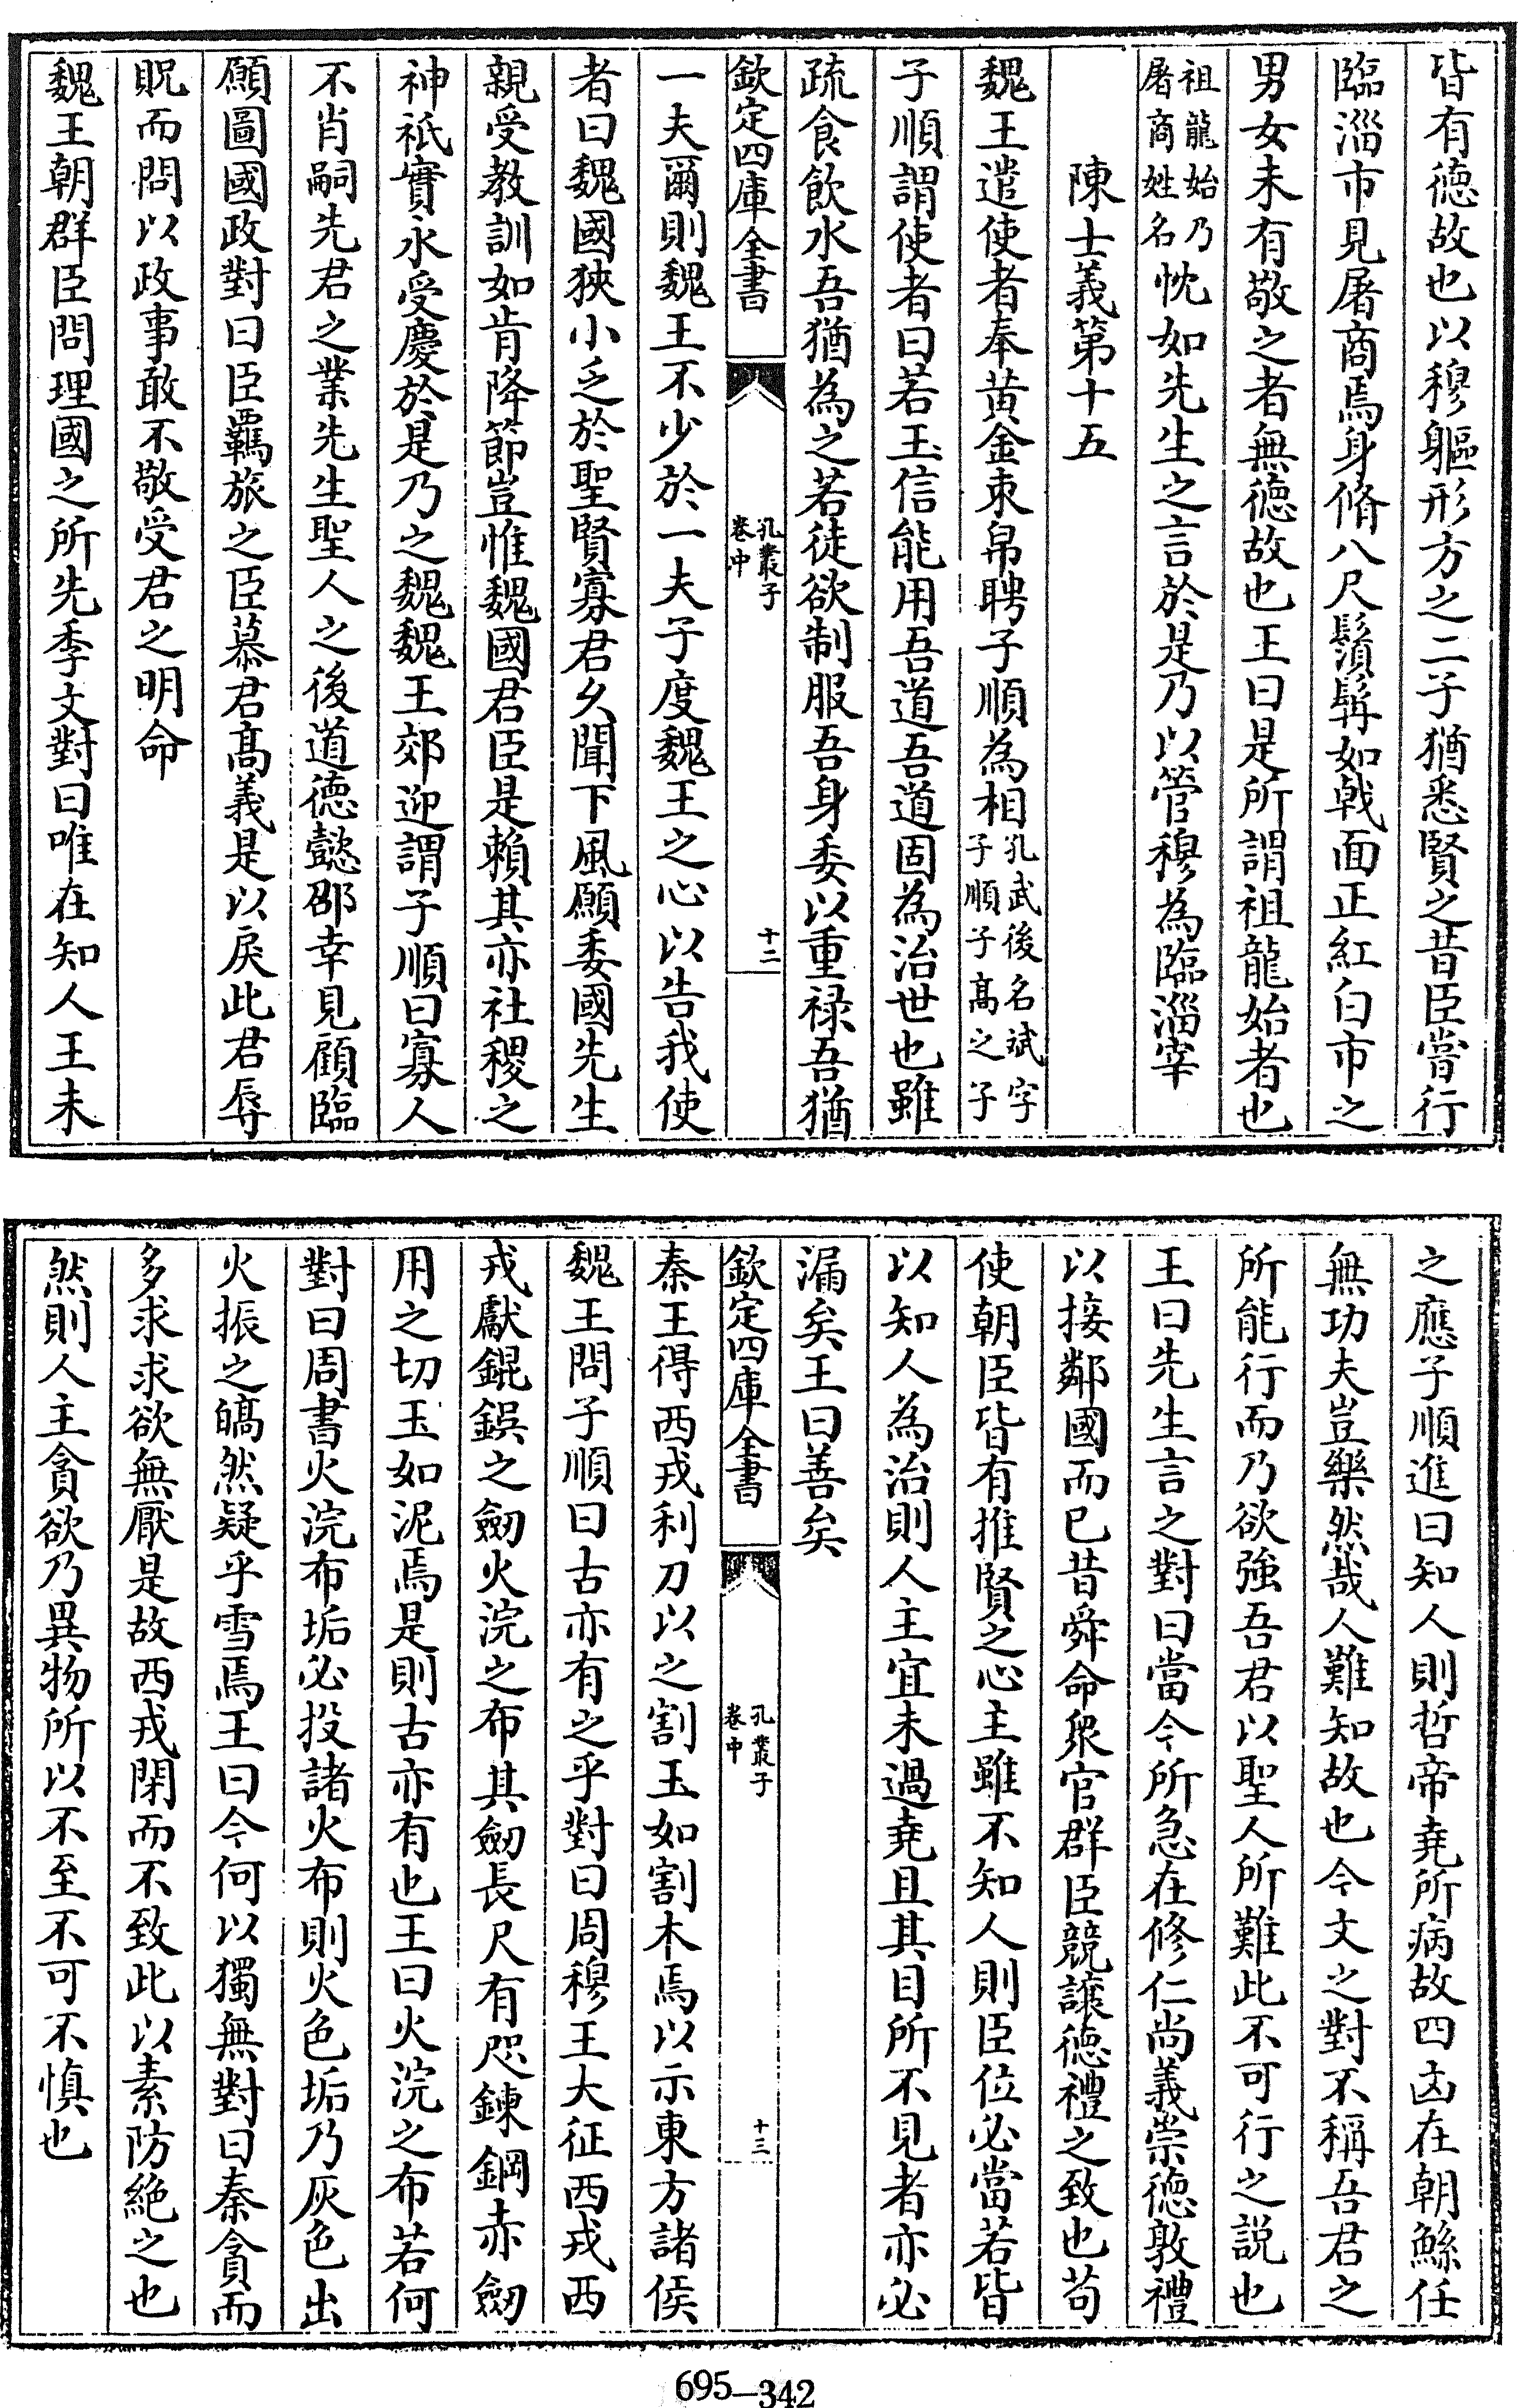 皆有德故也以穆軀形方之二子猶悉賢之昔臣嘗行
臨淄市見屠商焉身脩八尺鬚髯如戟面正紅白市之
男女未有敬之者無德故也王曰是所謂祖龍始者也
祖龍始乃
屠商姓名
忱如先生之言於是乃以管穆為臨淄宰
陳士義第十五
魏王遣使者奉黄金束帛聘子順為相
孔武後名斌字
子順子高之子
子順謂使者曰若王信能用吾道吾道固為治世也雖
疏食飲水吾猶為之若徒欲制服吾身委以重禄吾猶
欽定四庫全書
孔叢子
卷中
十二
一夫爾則魏王不少於一夫子度魏王之心以告我使
者曰魏國狹小乏於聖賢寡君久聞下風願委國先生
親受教訓如肯降節豈惟魏國君臣是賴其亦社稷之
神祇實永受慶於是乃之魏魏王郊迎謂子順曰寡人
不肖嗣先君之業先生聖人之後道德懿邵幸見顧臨
願圖國政對曰臣羈旅之臣慕君髙義是以戾此君辱
貺而問以政事敢不敬受君之明命
魏王朝群臣問理國之所先季文對曰唯在知人王未
之應子順進曰知人則哲帝堯所病故四凶在朝鯀任
無功夫豈樂然哉人難知故也今文之對不稱吾君之
所能行而乃欲強吾君以聖人所難此不可行之説也
王曰先生言之對曰當今所急在修仁尚義崇德敦禮
以接鄰國而已昔舜命眾官群臣競讓德禮之致也苟
使朝臣皆有推賢之心主雖不知人則臣位必當若皆
以知人為治則人主宜未過堯且其目所不見者亦必
漏矣王曰善矣
欽定四庫全書
孔叢子
卷中
十三
秦王得西戎利刀以之割玉如割木焉以示東方諸侯
魏王問子順曰古亦有之乎對曰周穆王大征西戎西
戎獻錕鋙之劒火浣之布其劒長尺有咫鍊鋼赤劒
用之切玉如泥焉是則古亦有也王曰火浣之布若何
對曰周書火浣布垢必投諸火布則火色垢乃灰色出
火振之皜然疑乎雪焉王曰今何以獨無對曰秦貪而
多求求欲無厭是故西戎閉而不致此以素防絶之也
然則人主貪欲乃異物所以不至不可不慎也
695-342